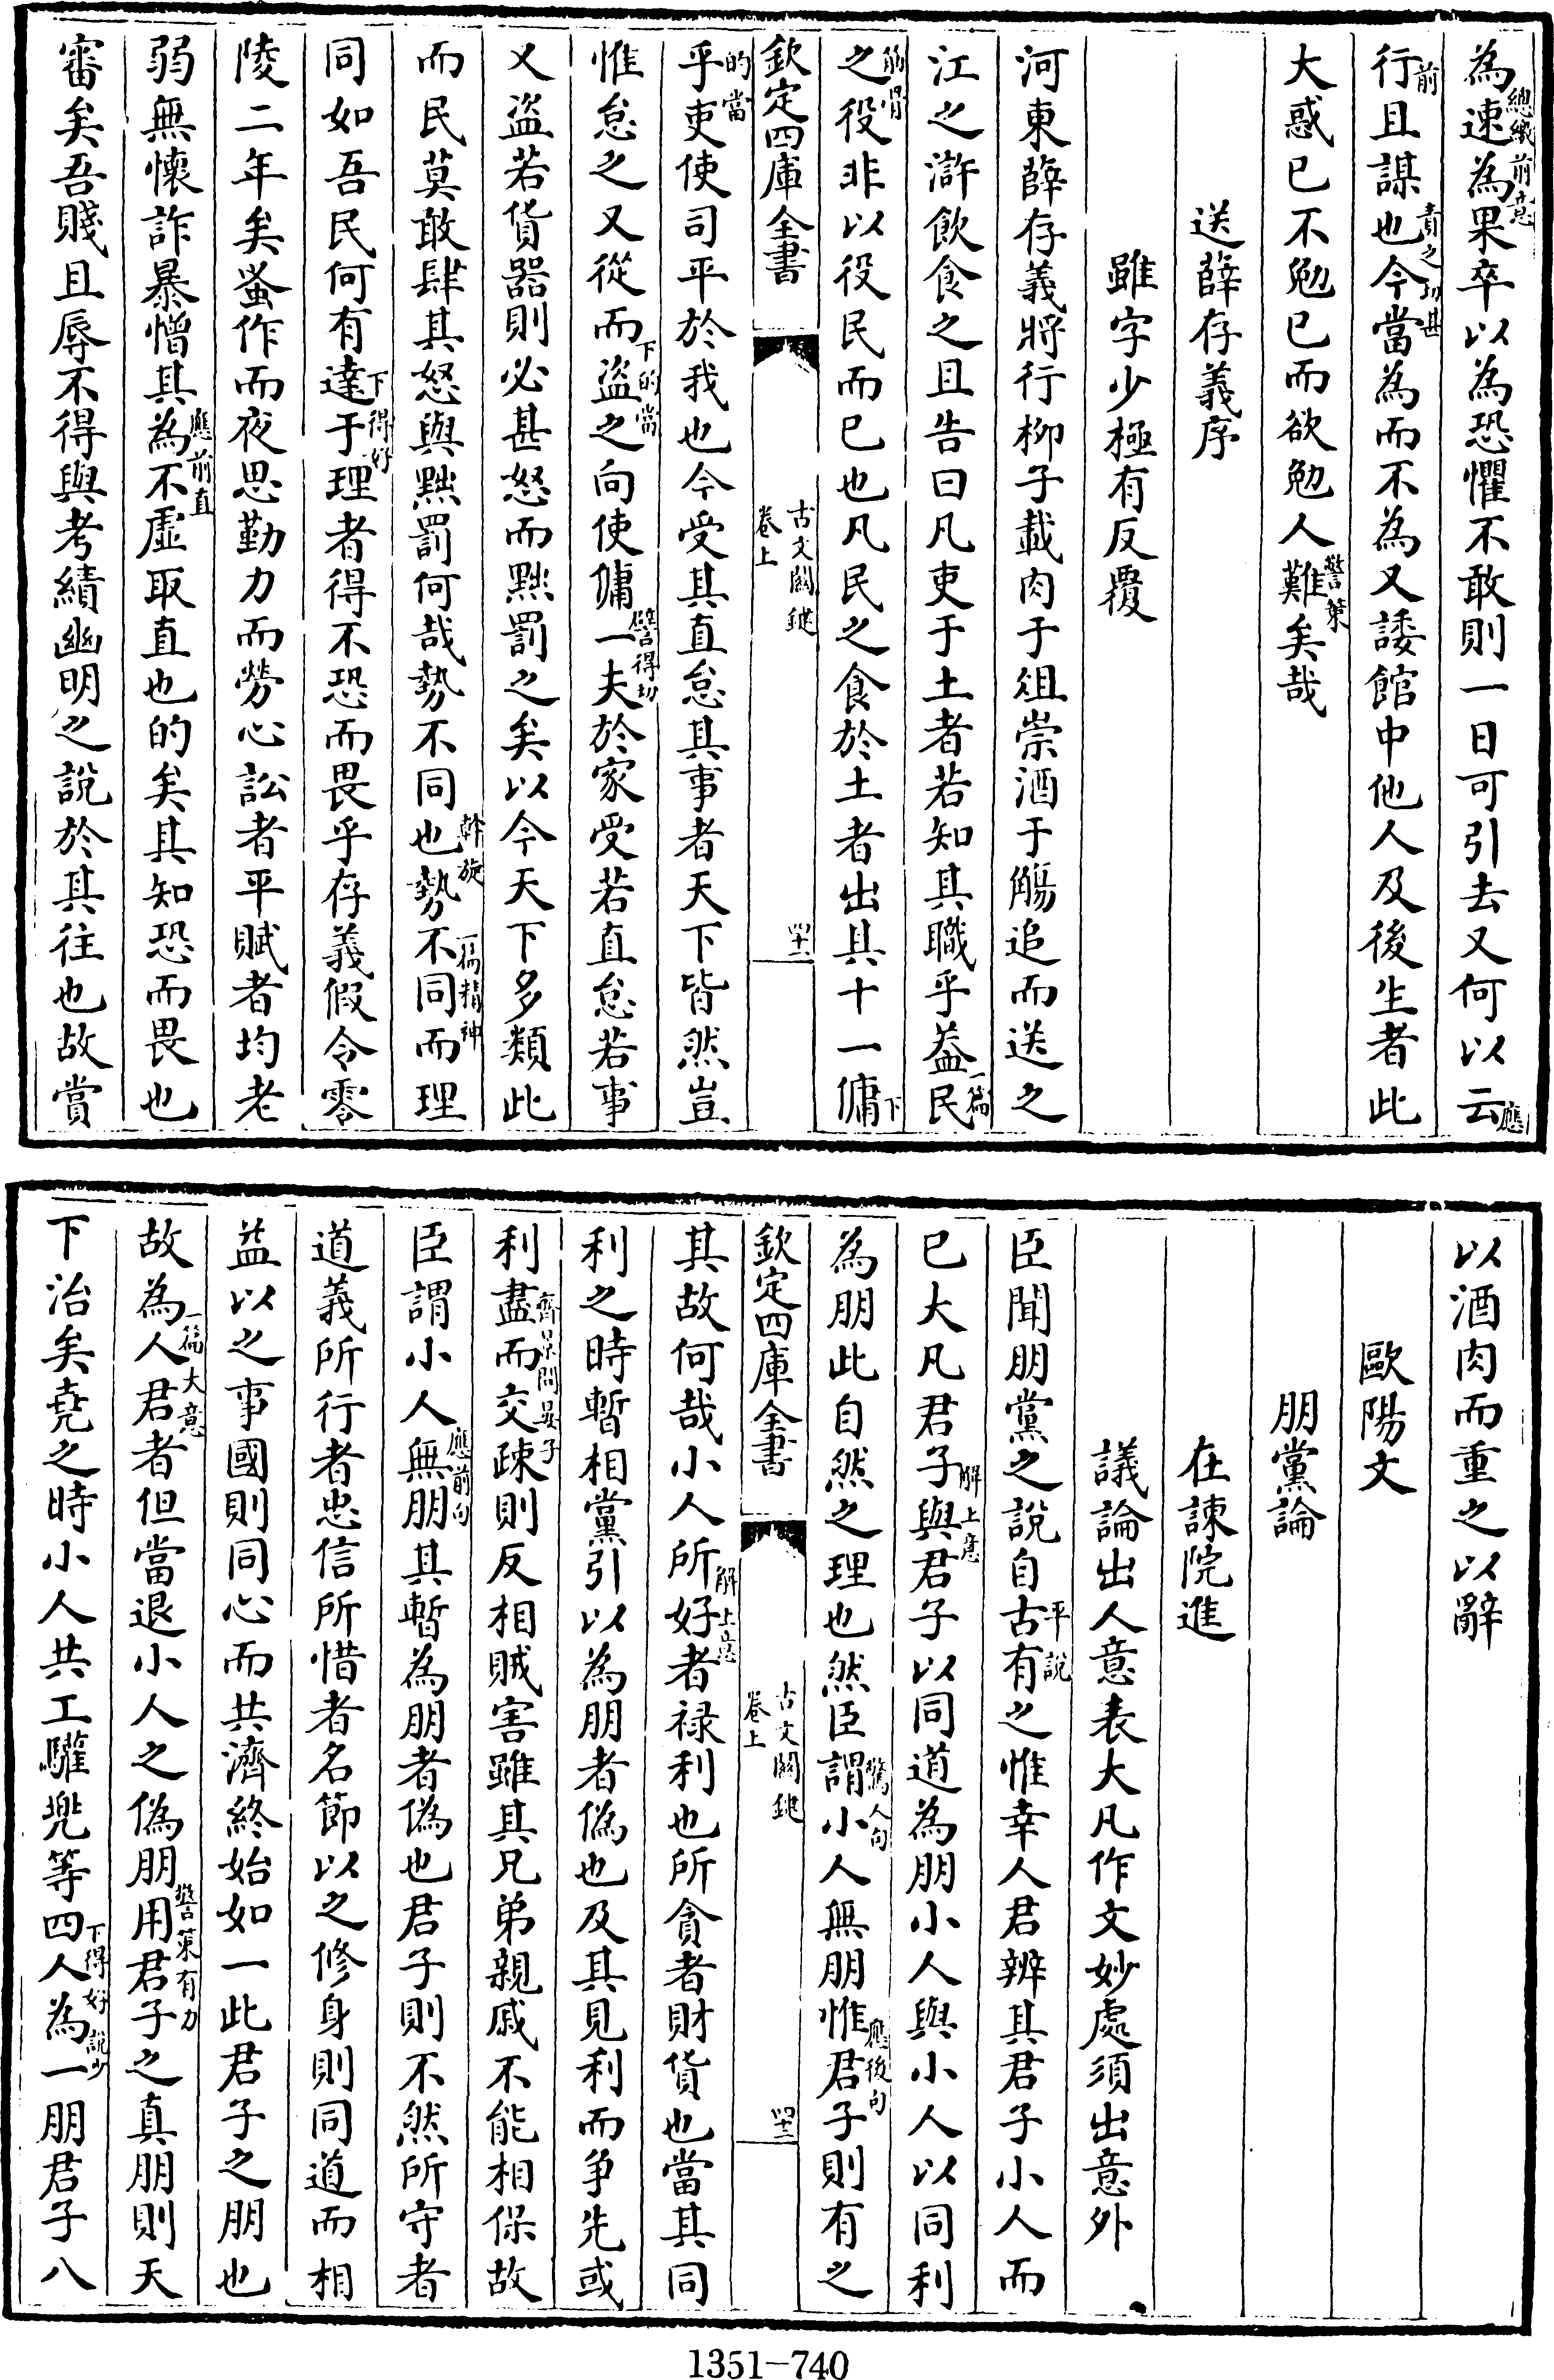 為速為果卒以為恐懼不敢則一日可引去又何以云
總繳前意
應
行且謀也今當為而不為又諉館中他人及後生者此
前
責之切甚
大惑已不勉已而欲勉人難矣哉
警策
送薛存義序
雖字少極有反覆
河東薛存義將行柳子載肉于俎崇酒于觴追而送之
江之滸飲食之且告曰凡吏于土者若知其職乎葢民
一篇
之役非以役民而已也凡民之食於土者出其十一傭
筋骨
下
欽定四庫全書
古文關鍵
卷上
四十二
乎吏使司平於我也今受其直怠其事者天下皆然豈
的當
惟怠之又從而盗之向使傭一夫於家受若直怠若事
下的當
譬得切
又盗若貨器則必甚怒而黜罰之矣以今天下多類此
而民莫敢肆其怒與黜罰何哉勢不同也勢不同而理
斡旋
一篇精神
同如吾民何有達于理者得不恐而畏乎存義假令零
下得好
陵二年矣蚤作而夜思勤力而勞心訟者平賦者均老
弱無懷詐暴憎其為不虛取直也的矣其知恐而畏也
應前直
審矣吾賤且辱不得與考績幽明之說於其往也故賞
以酒肉而重之以辭
歐陽文
朋黨論
在諫院進
議論出人意表大凡作文妙處須出意外
臣聞朋黨之說自古有之惟幸人君辨其君子小人而
平說
已大凡君子與君子以同道為朋小人與小人以同利
解上意
為朋此自然之理也然臣謂小人無朋惟君子則有之
驚人句
應後句
欽定四庫全書
古文關鍵
卷上
四十三
其故何哉小人所好者祿利也所貪者財貨也當其同
解上意
利之時暫相黨引以為朋者偽也及其見利而争先或
利盡而交疎則反相賊害雖其兄弟親戚不能相保故
齊景問晏子
臣謂小人無朋其暫為朋者偽也君子則不然所守者
應前句
道義所行者忠信所惜者名節以之修身則同道而相
益以之事國則同心而共濟終始如一此君子之朋也
故為人君者但當退小人之偽朋用君子之真朋則天
一篇大意
警策有力
下治矣堯之時小人共工驩兜等四人為一朋君子八
下得好
說少
1351-740